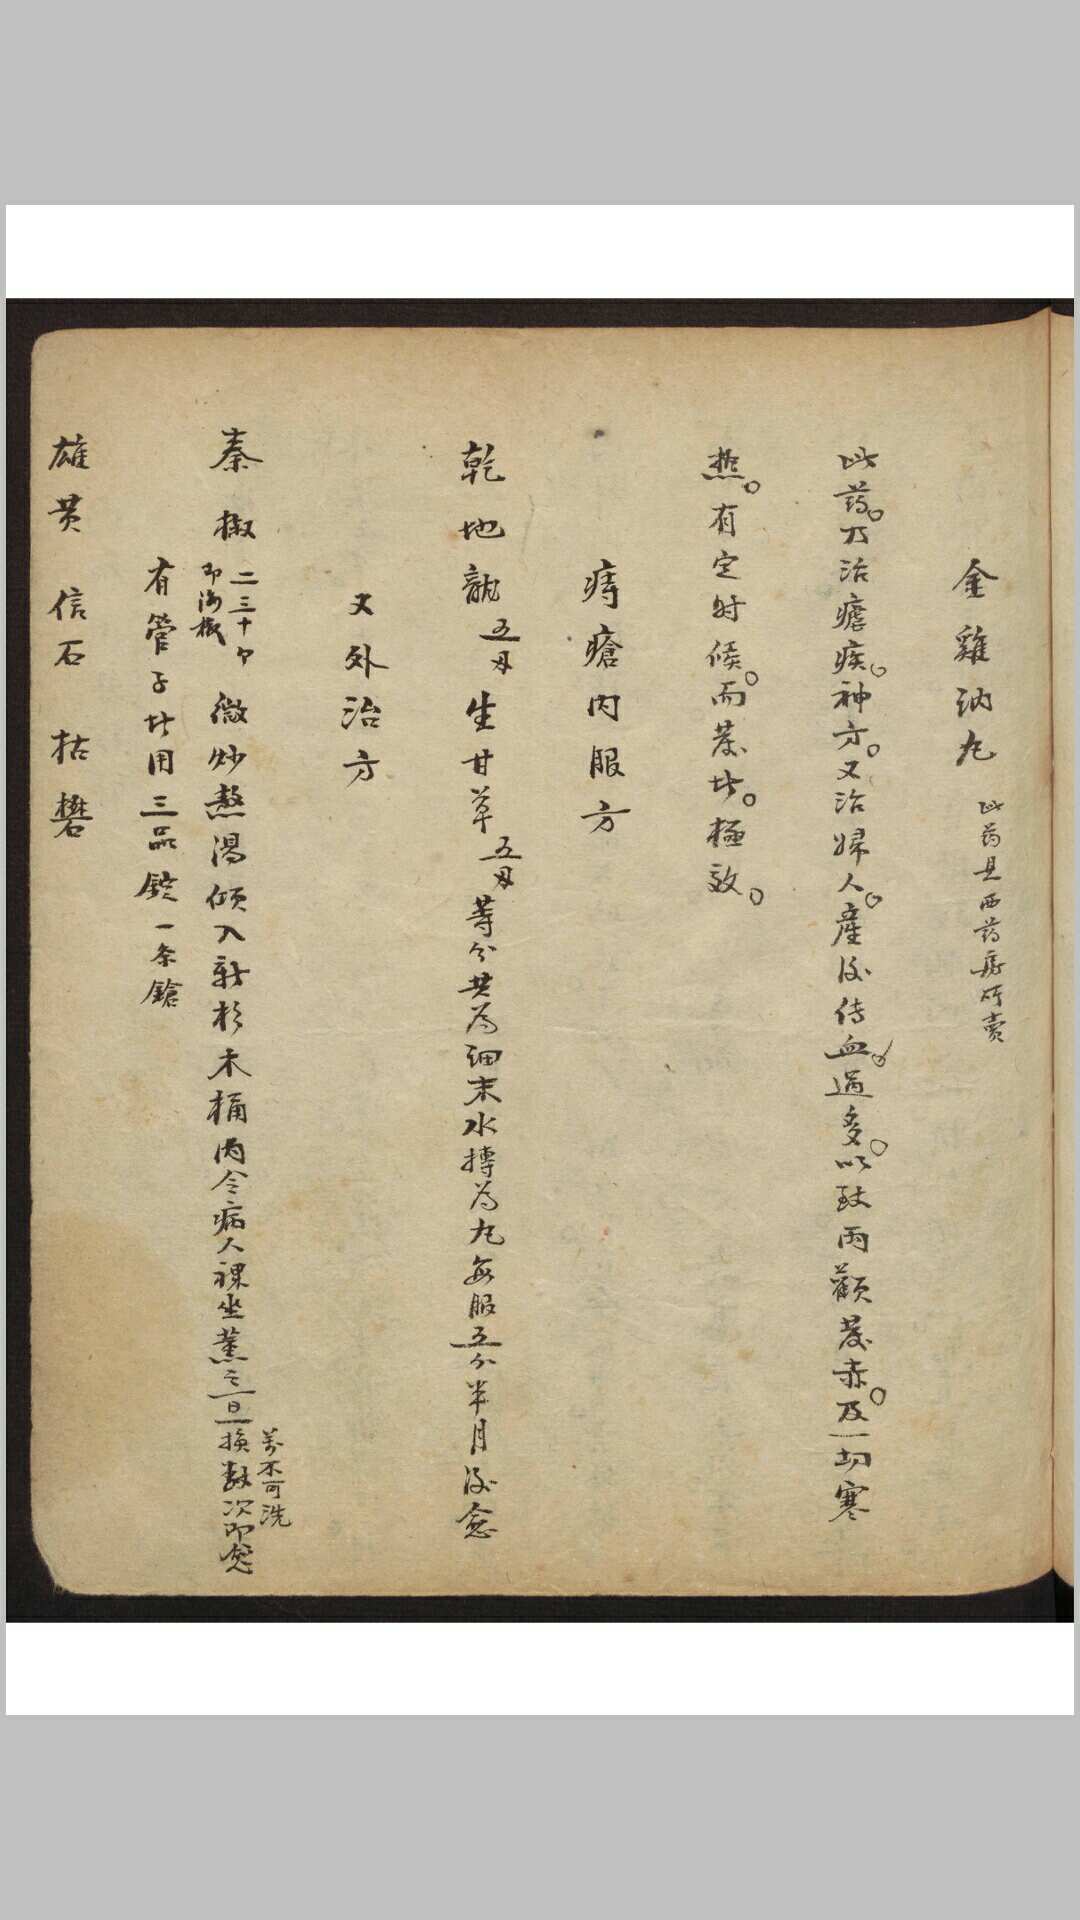 金雞納丸 此药是西药房所卖
此药。乃治瘧疾。神方。又治婦人。産後傷血。過多。以致兩顴發赤。及一切寒
热。有定时候。而发者。極效。
痔瘡内服方
乾地龍五錢 生甘草五錢 等分共為细末水摶為丸每服五分半月後愈
又外治方
秦椒二三十个 即海椒 微炒熬湯傾入新杉木桶内令病人裸坐薰之一日一換数次即愈 萬不可洗
有管子者用三品錠一条鎗
雄黄 信石 枯礬